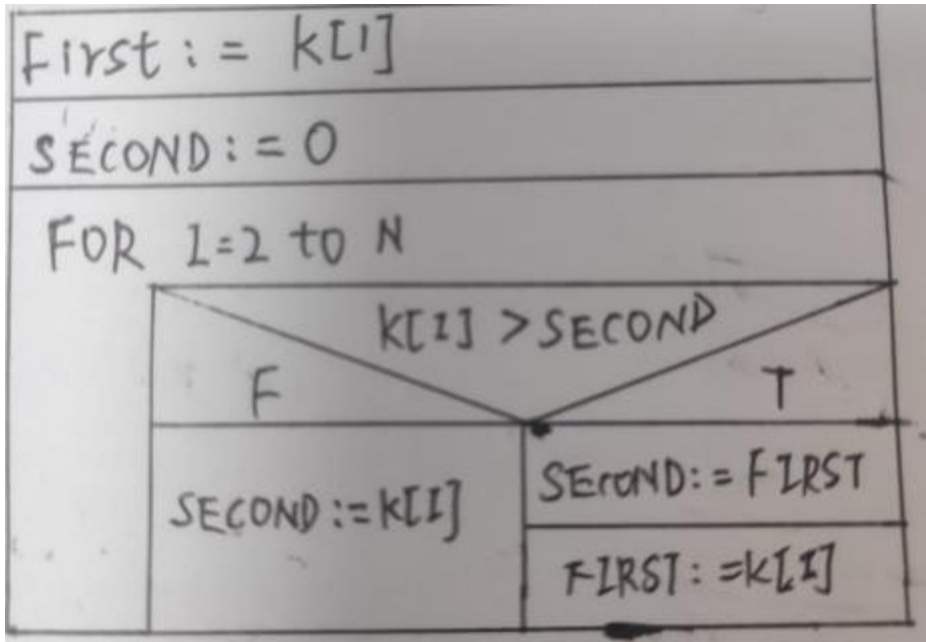 First := K[1]
SECOND := 0
FOR I=2 to N
K[I] > SECOND
F
T
SECOND := K[I]
SECOND := FIRST
FIRST := K[I]